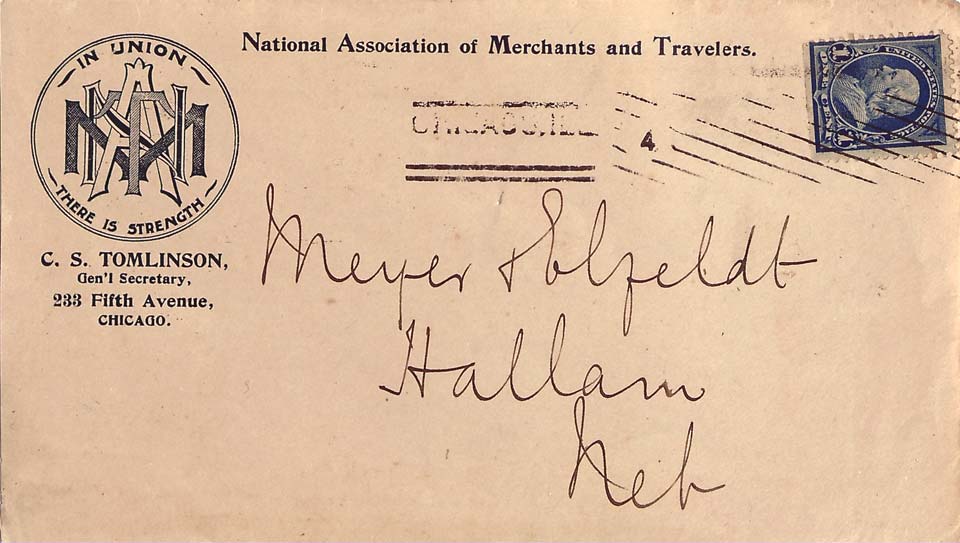 National Association of Merchants and Travelers.
IN UNION
THERE IS STRENGTH
C. S. TOMLINSON,
Gen'l Secretary,
233 Fifth Avenue,
CHICAGO.
CHICAGO, ILL.
4
UNITED STATES
Meyer & Ehlfeldt
Hallam
Neb